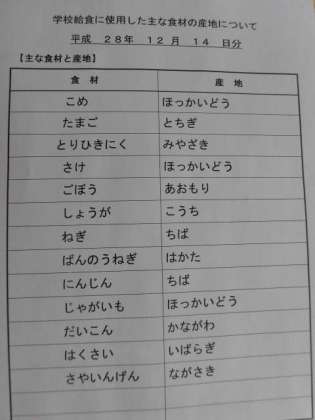 学校給食に使用した主な食材の産地について
平成 28年 12月 14日分
【主な食材と産地】
食材 産地
こめ ほっかいどう
たまご とちぎ
とりひきにく みやざき
さけ ほっかいどう
ごぼう あおもり
しょうが こうち
ねぎ ちば
ばんのうねぎ はかた
にんじん ちば
じゃがいも ほっかいどう
だいこん かながわ
はくさい いばらぎ
さやいんげん ながさき